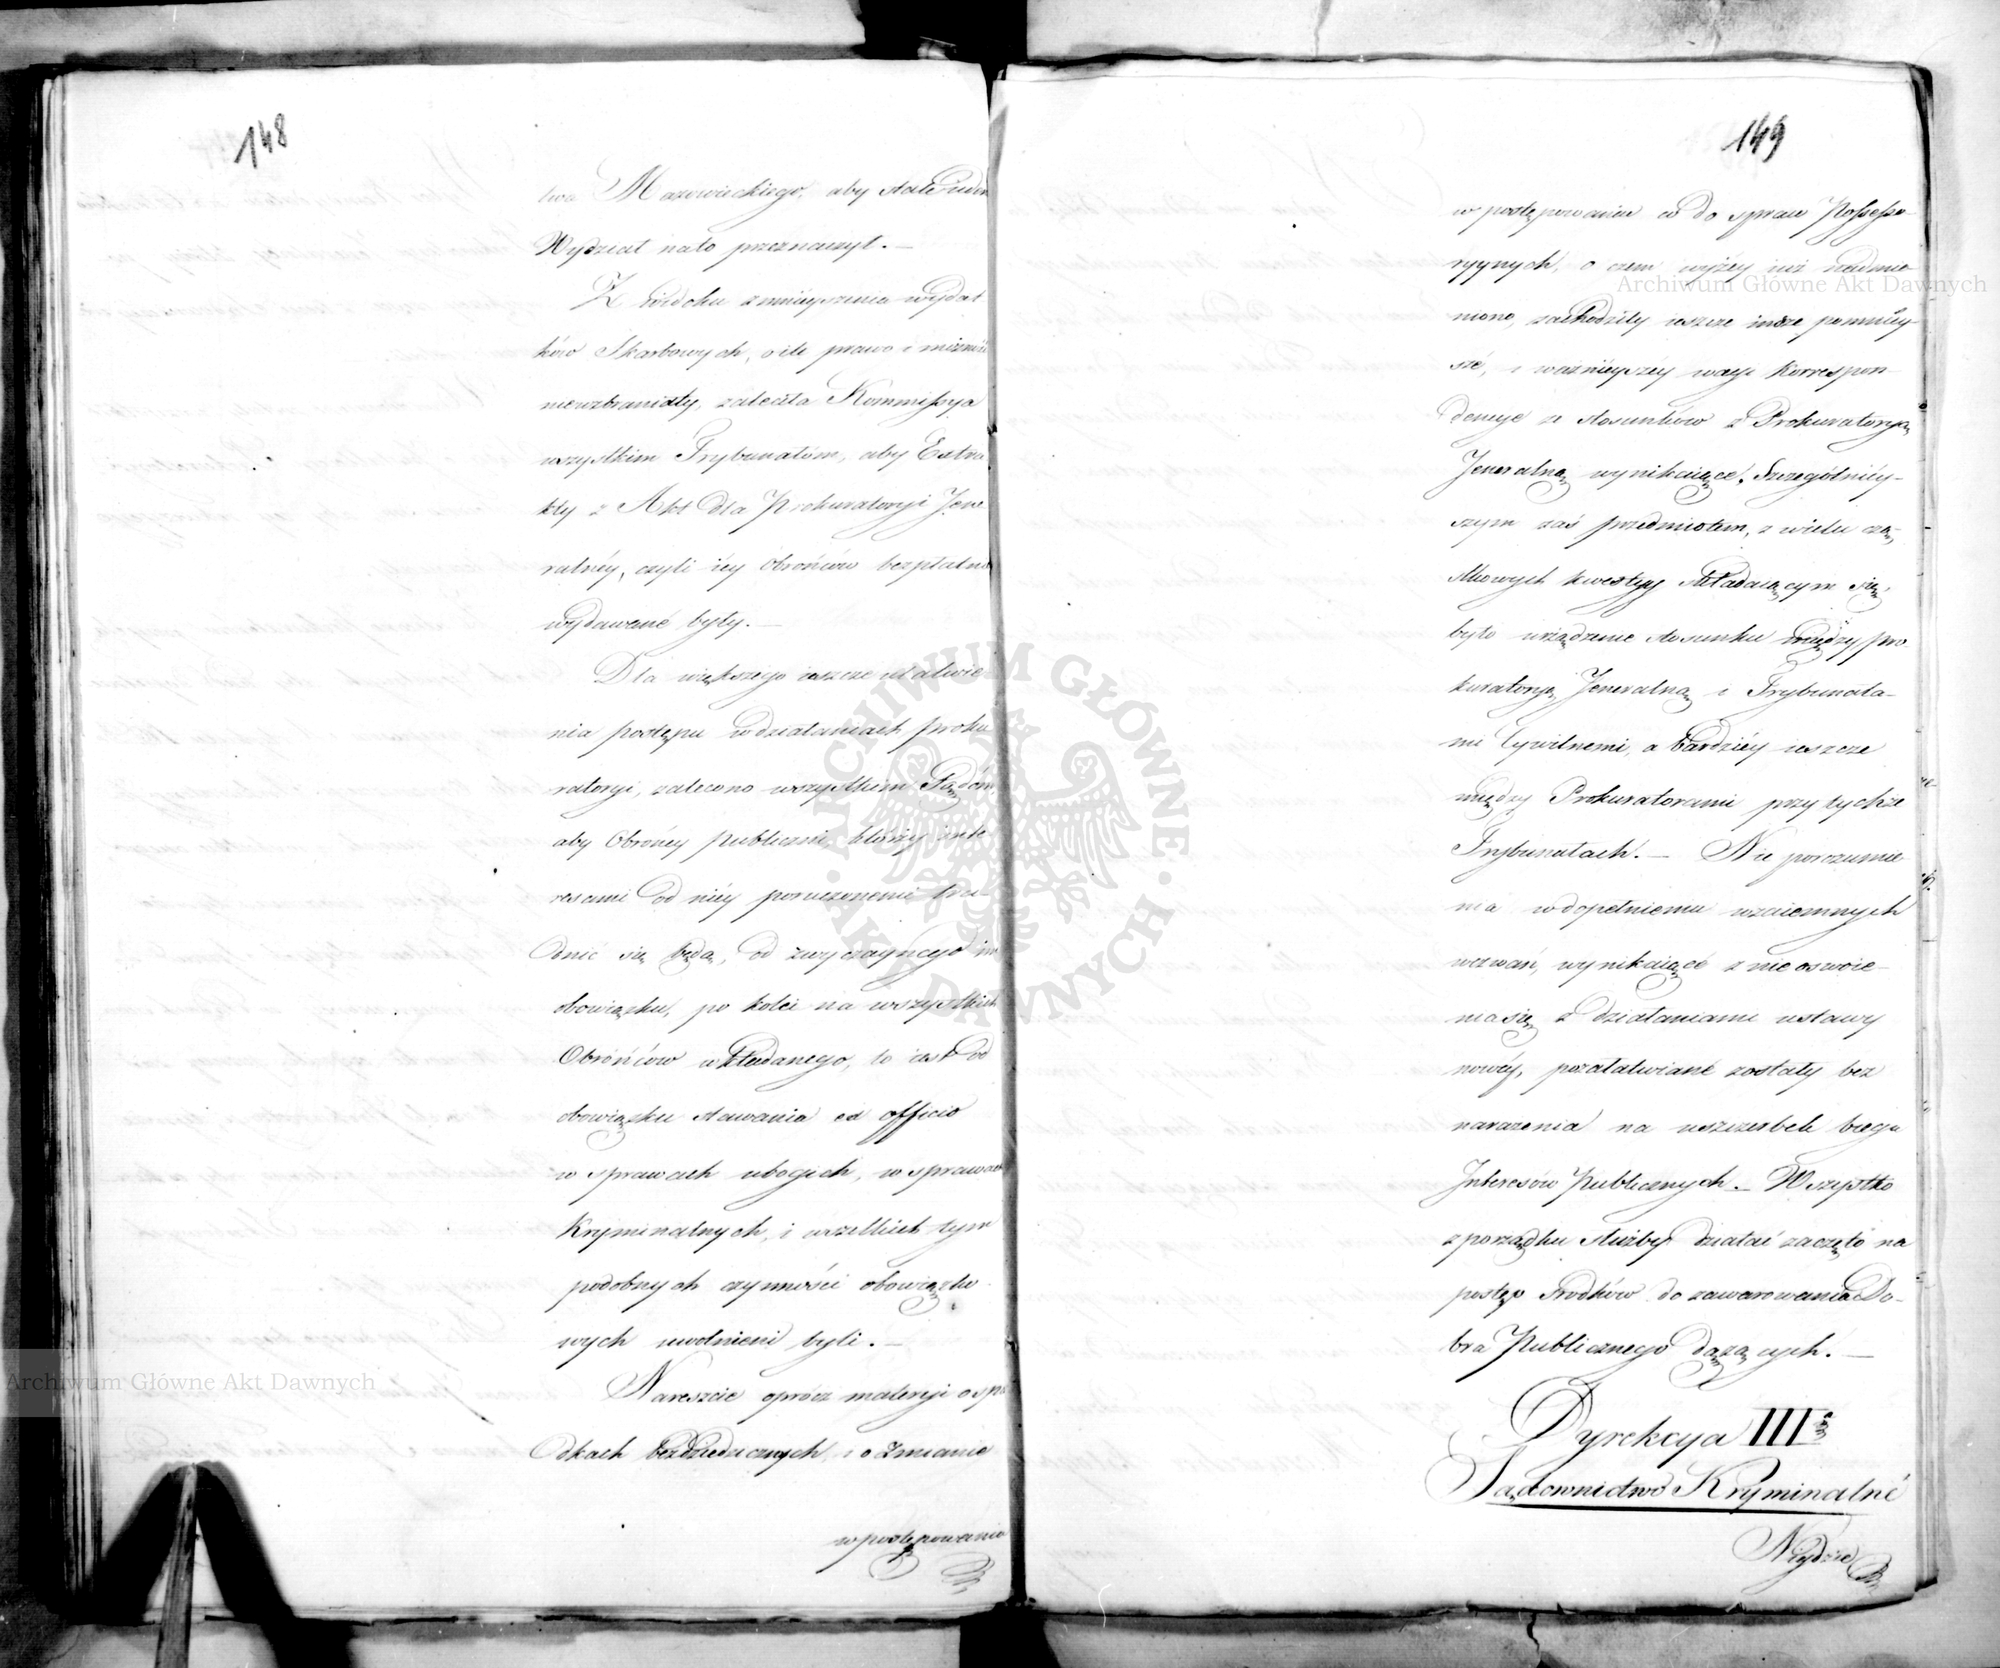 148
twa Mazowieckiego, aby stale ieden
Wydział nato przeznaczył. —
Z widoku zmnieyszenia wydat
ków Skarbowych, o ile prawo i możność
niewzbraniały, zaleciła Kommissya
wszystkim Trybunałóm, aby Extra
kty z Akt dla Prokuratoryi Jene
ralnéy, czyli iéy Obrońców bezpłatnie
wydawané były. —
Dla większego ieszcze ułatwie
nia postępu w działaniach proku
ratoryi, zalecono wszystkim Sądóm,
aby Obrońcy publiczni, którzy inte
resami od niéy poruczonemi tru
dnić się będą, od zwyczaynego
obowiązku, po kolei na wszystkich
Obrońców wkładanego, to iest od
obowiązku stawania ex officio
w sprawach ubogich, w sprawach
Kryminalnych, i wszelkich tym
podobnych czynności obowiązko
wych uwolnieni byli. —
Nareszcie oprócz materyi o spa
dkach bezdziedzicznych, i o zmianie
w postępowaniu
149
w postępowaniu co do spraw Possesso-
ryynych, o czem wyżey iuż nadmie
niono, zachodziły ieszcze insze pomniéy-
szé, i ważnieyszéy wagi Korrespon
dencye ze stosunków z Prokuratoryą
Jeneralną wynikaiącé. Szczególniéy-
szym zaś przedmiotem, z wielu czą-
stkowych kwestyy składaiącym się,
było urządzenie stosunku między pro
kuratoryą Jeneralną i Trybunała-
mi Cywilnemi, a bardziéy ieszcze
między Prokuratorami przy tychże
Trybunałach. — Nie porozumie
nia w dopełnieniu wzaiemnych
wezwań, wynikaiącé z nie oswoie-
nia się z działaniami ustawy
nowéy, pozałatwiané zostały bez
narażenia na uszczerbek biegu
Interesów Publicznych. — Wszystko
z porządku służby działać zaczęło na
postęp środków do zawarowania Do-
bra Publicznego dążących. —
Dyrekcya III
Sądownictwo Kryminalné
Nigdzie
Archiwum Główne Akt Dawnych
Archiwum Główne Akt Dawnych
ARCHIWUM GŁÓWNE AKT DAWNYCH